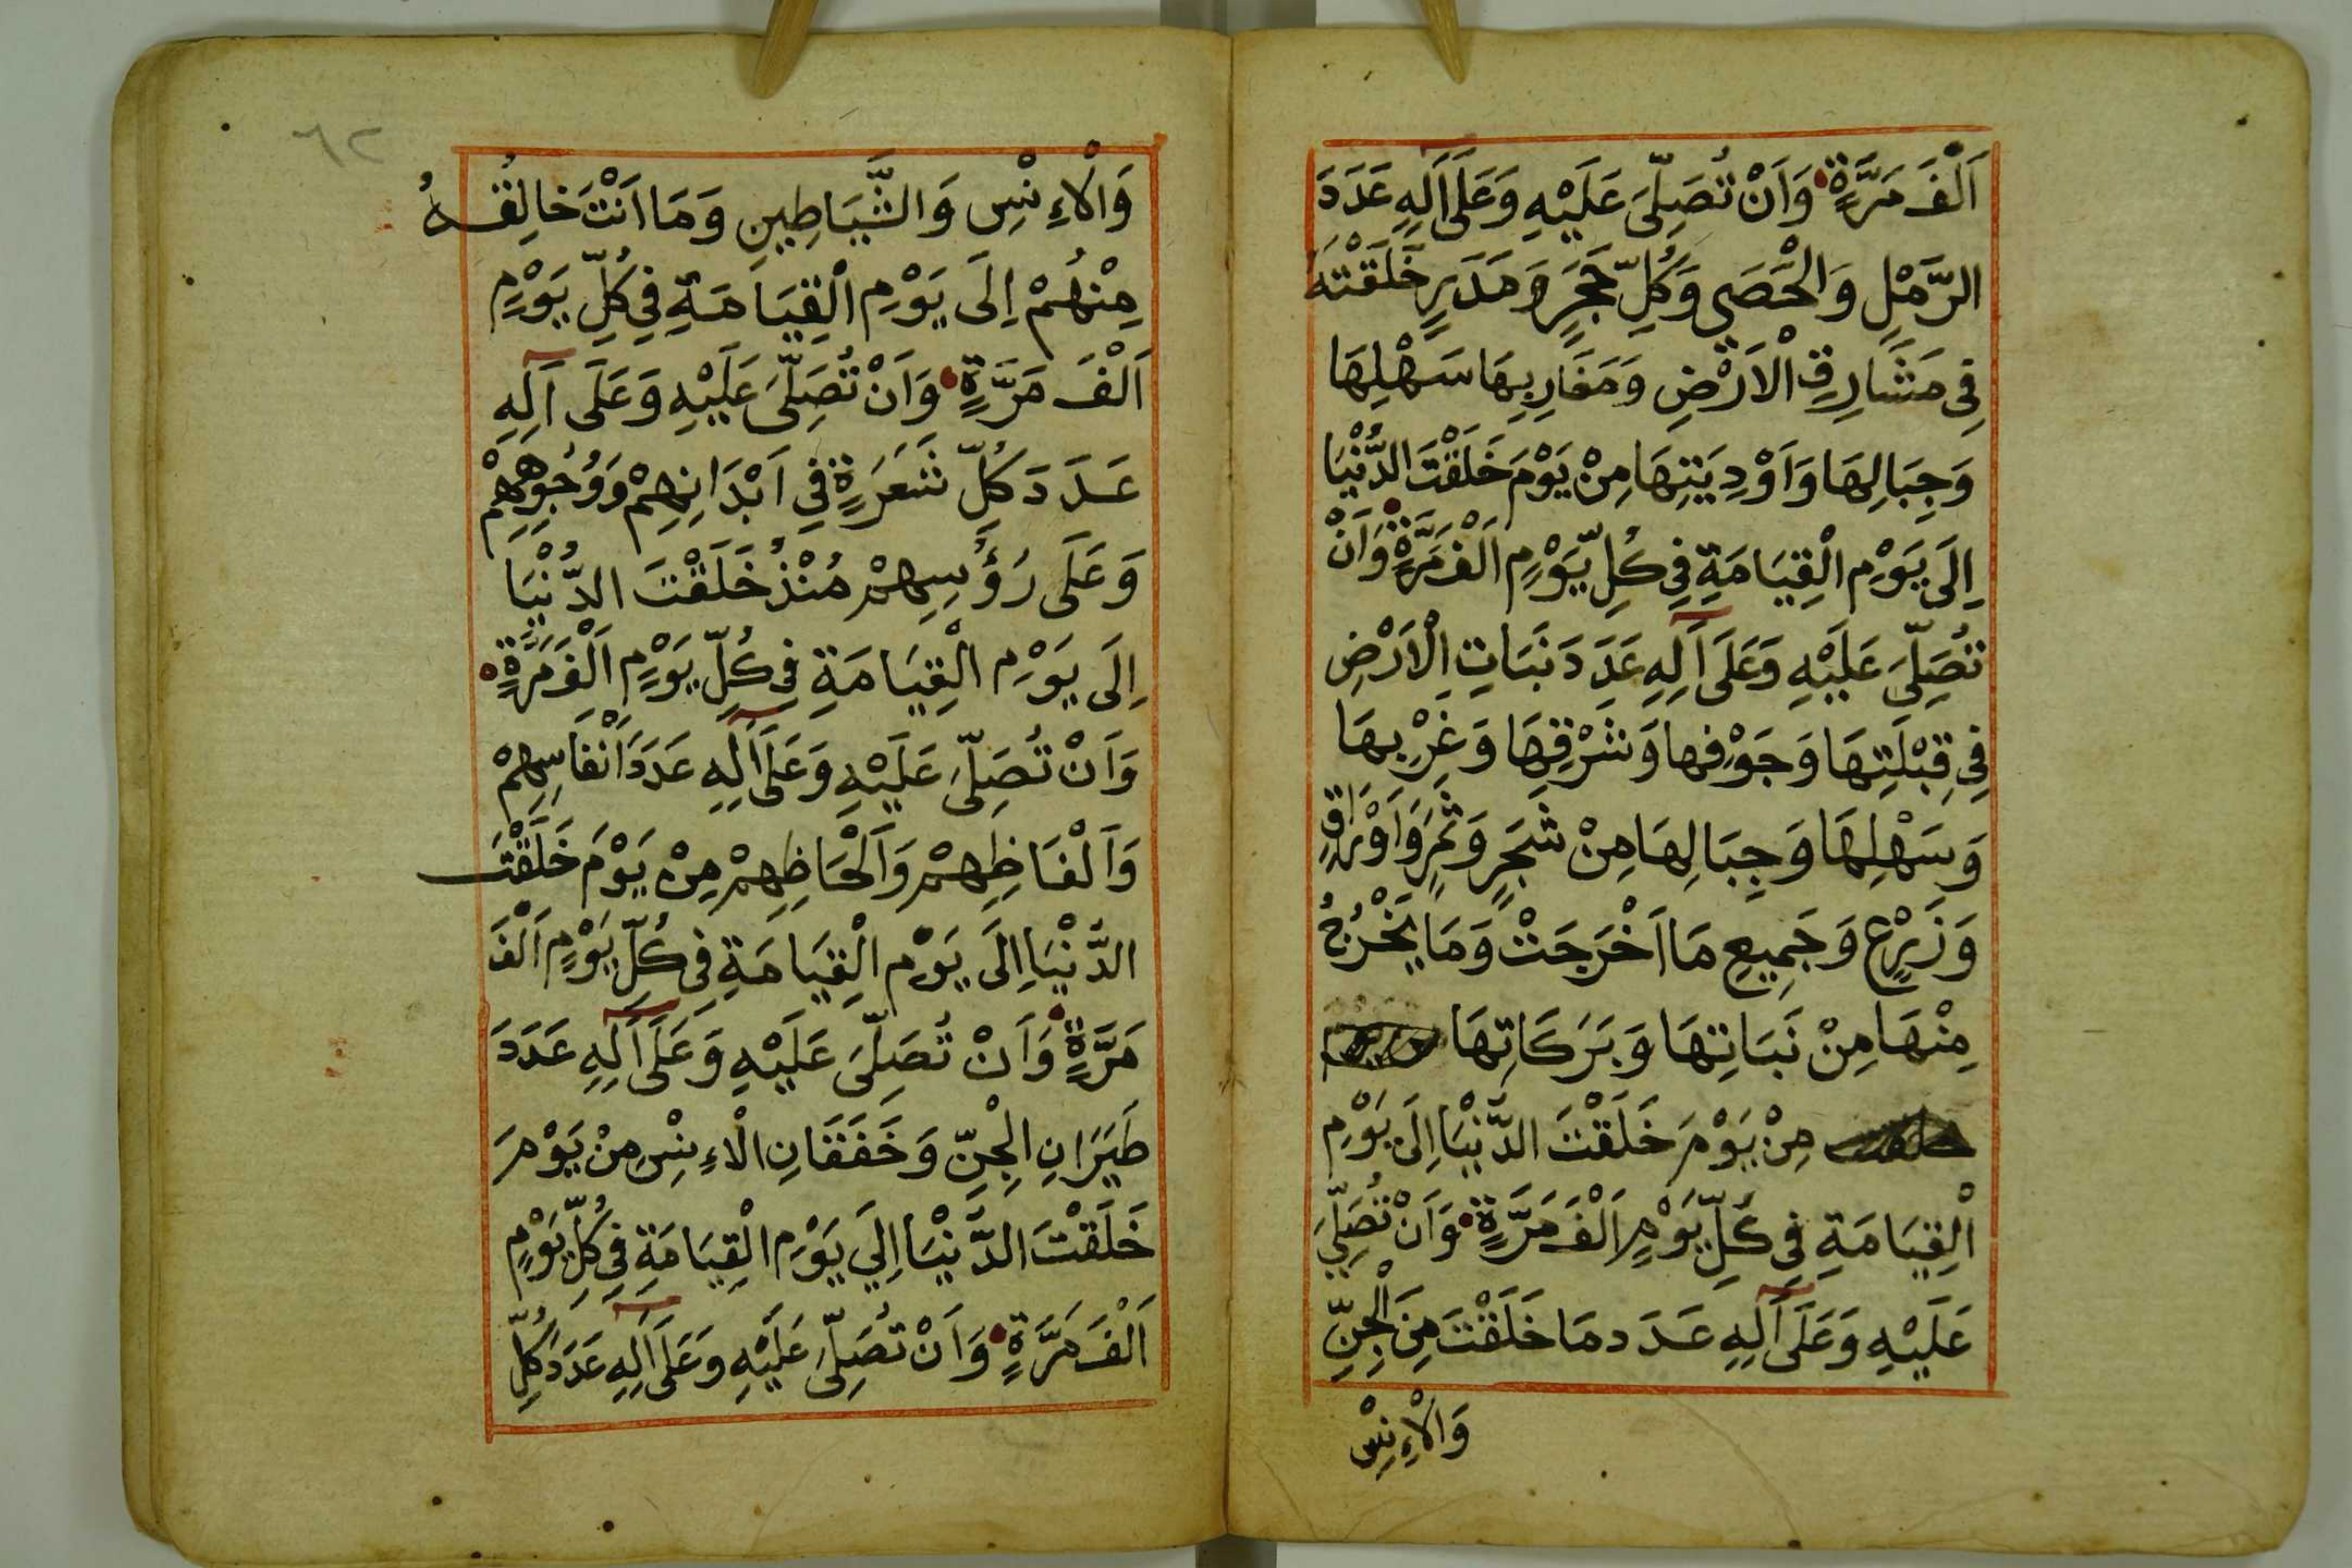 اَلْفَ مَرَّةٍ وَاَنْ تُصَلِّىَ عَلَيْهِ وَعَلَى اَلِهِ عَدَدَ
الرَّمْلِ وَالْحَصَي وَكُلِّ حَجَرٍ وَمَدَرٍ خَلَقْتَهُ
فِى مَشَارِقِ الْاَرْضِ وَمَغَارِبِهَا سَهْلِهَا
وَجِبَالِهَا وَاَوْدِيَتِهَا مِنْ يَوْمَ خَلَقْتَ الدُّنْيَا
اِلَى يَوْمِ الْقِيَامَةِ فِى كُلِّ يَوْمٍ اَلْفَ مَرَّةٍ وَاَنْ
تُصَلِّىَ عَلَيْهِ وَعَلَى اَلِهِ عَدَدَ نَبَاتِ الْاَرْضِ
فِى قِبْلَتِهَا وَجَوْفِها وَشَرْقِهَا وَغَرْبِهَا
وَسَهْلِهَا وَجِبَالِهَا مِنْ شَجَرٍ وَثَمَرٍ وَاَوْرَاقٍ
وَزَرْعٍ وَجَمِيعِ مَا اَخْرَجَتْ وَمَا يَخْرُجُ
مِنْهَا مِنْ نَبَاتِهَا وَبَرَكَاتِهَا
مِنْ يَوْمَ خَلَقْتَ الدُّنْيَا اِلَى يَوْمِ
الْقِيَامَةِ فِى كُلِّ يَوْمٍ اَلْفَ مَرَّةٍ وَاَنْ تُصَلِّيَ
عَلَيْهِ وَعَلَى اَلِهِ عَدَدَ مَا خَلَقْتَ مِنَ الْجِنِّ
وَالْاِءنْسِ
٦٢
وَالْاِءنْسِ وَالشَّيَاطِينِ وَمَا اَنْتَ خَالِقُهُ
مِنْهُمْ اِلَى يَوْمِ الْقِيَامَةِ فِي كُلِّ يَوْمٍ
اَلْفَ مَرَّةٍ وَاَنْ تُصَلِّىَ عَلَيْهِ وَعَلَى اَلِهِ
عَدَدَ كُلِّ شَعَرَةٍ فِي اَبْدَانِهِمْ وَوُجُوهِهِمْ
وَعَلَى رُؤُسِهِمْ مُنْذُ خَلَقْتَ الدُّنْيَا
اِلَى يَوْمِ الْقِيَامَةِ فِى كُلِّ يَوْمٍ اَلْفَ مَرَّةٍ
وَاَنْ تُصَلِّىَ عَلَيْهِ وَعَلَى اَلِهِ عَدَدَ اَنْفَاسِهِمْ
وَاَلْفَاظِهِمْ وَاَلْحَاظِهِمْ مِنْ يَوْمَ خَلَقْتَ
الدُّنْيَا اِلَى يَوْمِ الْقِيَامَةِ فِى كُلِّ يَوْمٍ اَلْفَ
مَرَّةٍ وَاَنْ تُصَلِّىَ عَلَيْهِ وَعَلَى اَلِهِ عَدَدَ
طَيَرَانِ الْجِنِّ وَخَفَقَانِ الْاِءنْسِ مِنْ يَوْمَ
خَلَقْتَ الدُّنْيَا اِلَي يَوْمِ الْقِيَامَةِ فِى كُلِّ يَوْمٍ
اَلْفَ مَرَّةٍ وَاَنْ تُصَلِّىَ عَلَيْهِ وَعَلَى اَلِهِ عَدَدَ كُلِّ